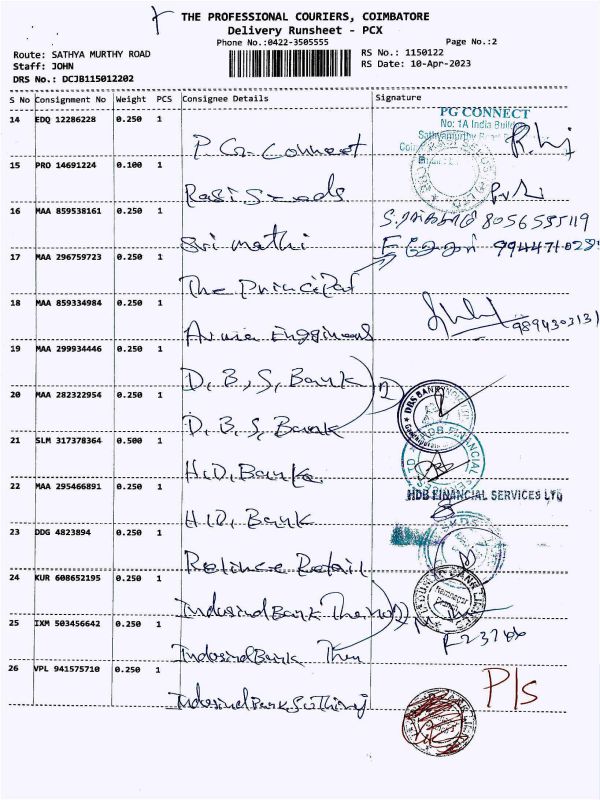 THE PROFESSIONAL COURIERS, COIMBATORE
Delivery Runsheet - PCX
Phone No.:0422-3505555
Page No.:2
Route: SATHYA MURTHY ROAD
RS No.: 1150122
Staff: JOHN
RS Date: 10-Apr-2023
DRS No.: DCJB115012202
S No Consignment No Weight PCS Consignee Details Signature
14 EDQ 12286228 0.250 1
P G Connect
PG CONNECT
No: 1A India Build
15 PRO 14691224 0.100 1
Rasi Seeds
16 MAA 859538161 0.250 1
Sri mathi
8056585119
17 MAA 296759723 0.250 1
The Principal
18 MAA 859334984 0.250 1
9894303131
19 MAA 299934446 0.250 1
D, B, S, Bank
20 MAA 282322954 0.250 1
D, B, S, Bank
DBS BANK
21 SLM 317378364 0.500 1
H.D, Bank
HDB FINANCIAL
22 MAA 295466891 0.250 1
H.D, Bank
HDB FINANCIAL SERVICES LTD
23 DDG 4823894 0.250 1
Reliance Retail
24 KUR 608652195 0.250 1
Indusind Bank
25 IXM 503456642 0.250 1
Indusind Bank
26 VPL 941575710 0.250 1
Indusind Bank
P/s